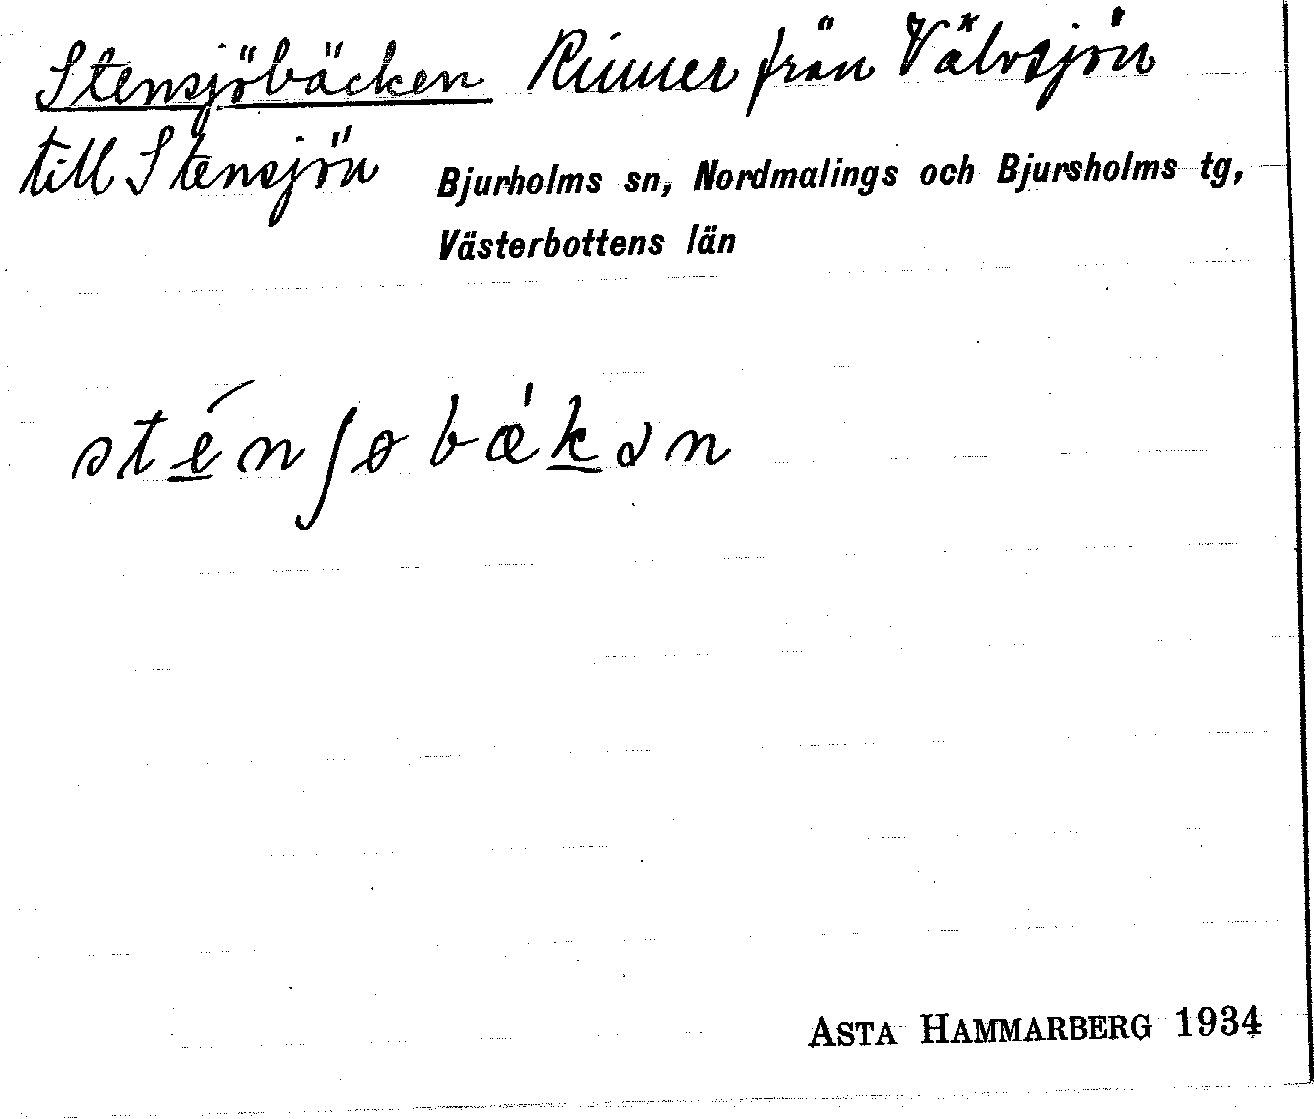 Stensjöbäcken Rinner från Välvsjön
till Stensjön Bjurholms sn, Nordmalings och Bjursholms tg,
Västerbottens län
sténʃøbǽkən
ASTA HAMMARBERG 1934